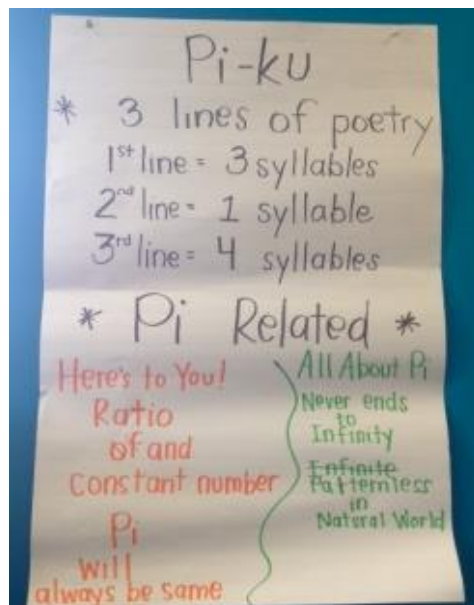 Pi-ku
* 3 lines of poetry
1st line = 3 syllables
2nd line = 1 syllable
3rd line = 4 syllables
* Pi Related *
Here's to You!
Ratio
of and
constant number
Pi
will
always be same
All About Pi
Never ends
to
Infinity
Enfinite
Patternless
in
Natural World